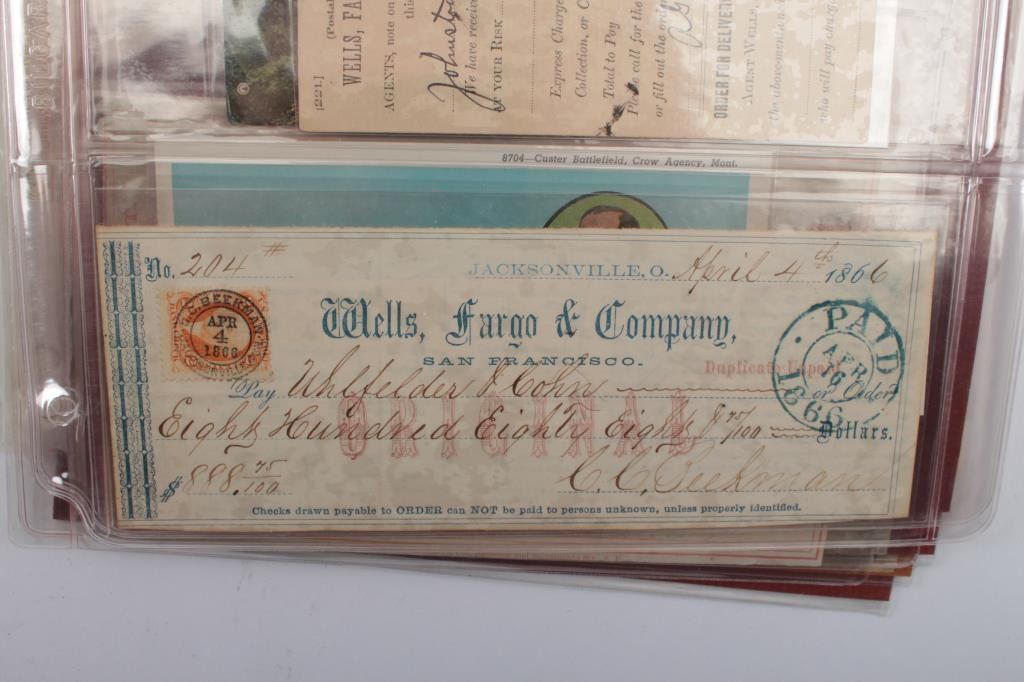 [221.]
(Postal
WELLS, FA
AGENTS, note on
this
Johnston
We have receive
AT YOUR RISK
Express Charge
Collection, or C
Total to Pay
Please call for the
or fill out the
ORDER FOR DELIVER
AGENT WELLS,
the abovemention
who will pay charg
©
8704—Custer Battlefield, Crow Agency, Mont.
No. 204 #
JACKSONVILLE, O. April 4th 1866
C. C. BEEKMAN
APR
4
1866
Wells, Fargo & Company,
SAN FRANCISCO.
PAID
APR
9
1866
Duplicate Unpaid
Pay Uhlfelder & Cohn or Order
ORIGINAL
Eight Hundred Eighty Eight & 75/100 Dollars.
$888.75/100
C. C. Beekman
Checks drawn payable to ORDER can NOT be paid to persons unknown, unless properly identified.